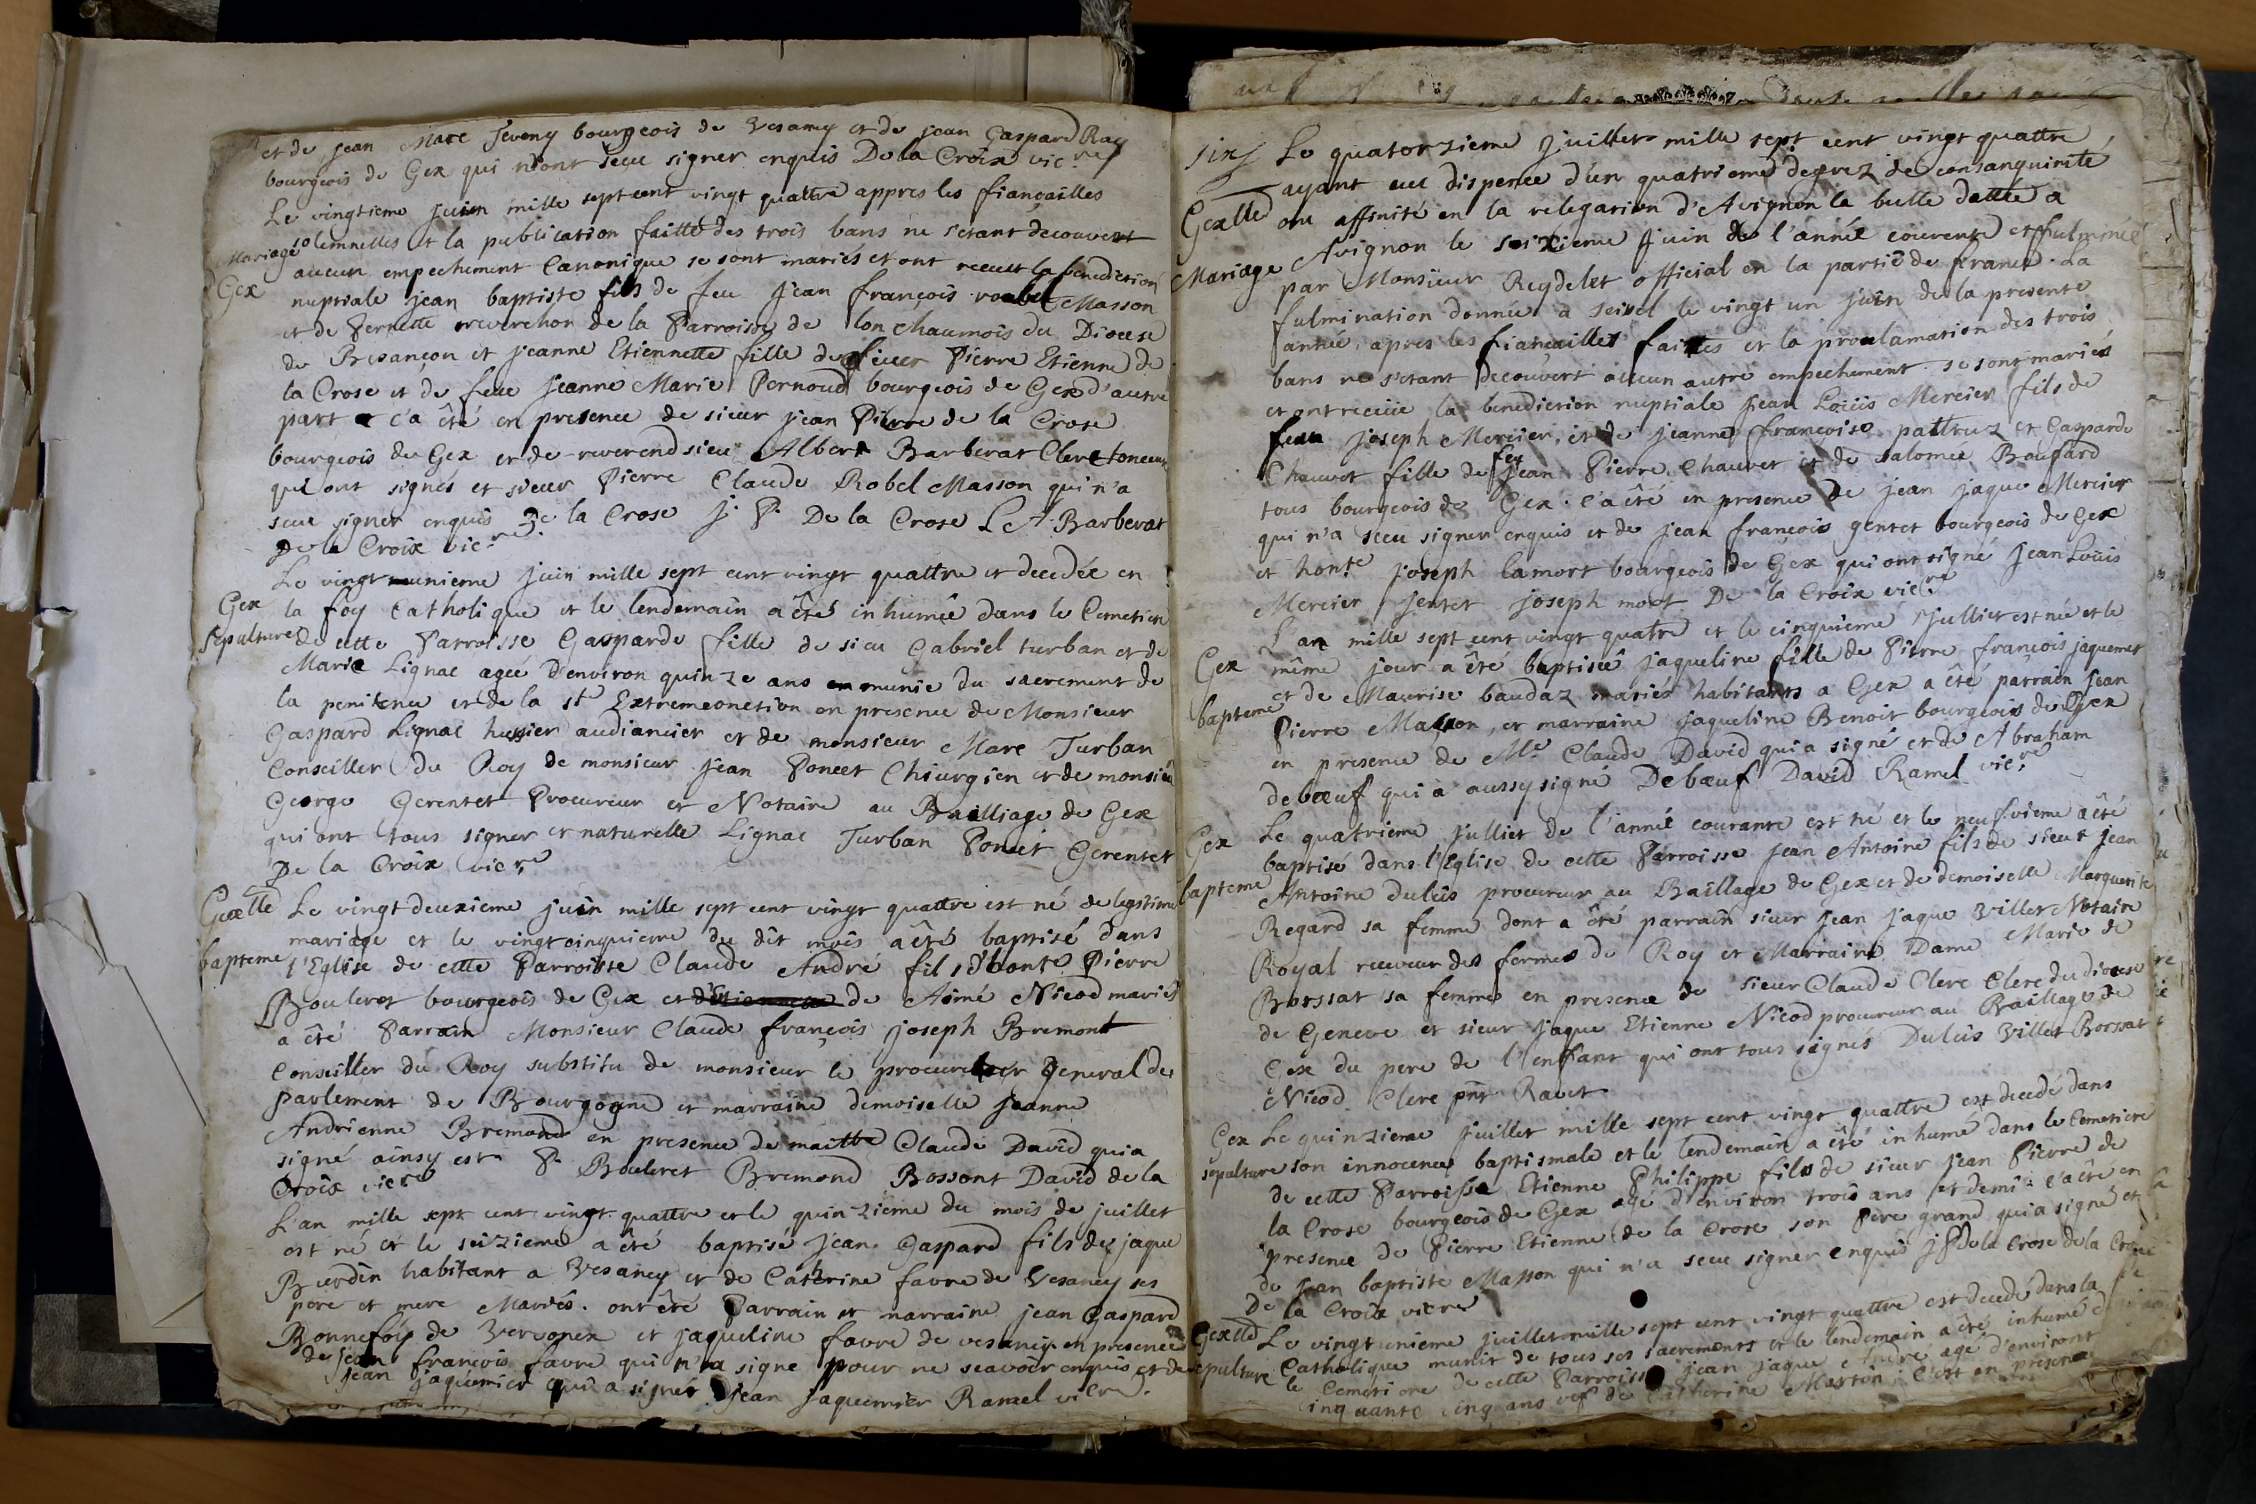 et de jean Marc Jeveny bourgeois de Vesancy et de jean Gaspard Ray
bourgeois de Gex qui n'ont seue signer enquis De la Croix vic.re
Le vingtieme juin mille sept cent vingt quattre appres les fiançailles
Mariage solemnelles et la publication faitte des trois bans ne s'etant decouvert
aucun empechement Canonique se sont mariés et ont receut la benediction
Gex nuptiale jean baptiste fils de feu Jean françois roubel Masson
et de Pernette reverchon de la Parroisse de lon chaumois du Diocese
de Besançon et jeanne Etiennette fille de sieur Pierre Etienne de
la Crose et de feue Jeanne Marie Pernoud bourgeois de Gex d'autre
part c'a été en presence de sieur jean Pierre de la Crose
bourgeois de Gex et de reverend sieu Albert Barberat Clerc tonceur
qui ont signés et sieur Pierre Claude Robel Masson qui n'a
seue signer enquis De la Crose J. P. De la Crose L A. Barberat
De la Croix vic.re
Le vingt unieme juin mille sept cent vingt quattre et decedée en
Gex la foy Catholique et le lendemain a êté inhumée dans le Cemetiere
sepulture de cette Parroisse Gasparde fille de sieu Gabriel turban et de
Marie Lignac ageé d'environ quinze ans munie du sacrement de
la penitence et de la ste Extremeonction en presence de Monsieur
Gaspard Lignac hussier audiancier et de monsieur Marc Turban
Conseiller du Roy de monsieur Jean Poncet Chiurgien et de monsieu
George Gerentet Procureur et Notaire au Bailliage de Gex
qui ont tous signer et naturelle Lignac Turban Poncet Gerentet
De la Croix vic.re
Gextte Le vingt deuxieme juin mille sept cent vingt quattre est né de legitime
mariage et le vingt cinquieme du dît mois a êté baptisé dans
bapteme l'Eglise de cette Parroisse Claude André fils d'honte Pierre
Bouleret bourgeois de Gex et de Aimé Nicod mariés
a êté Parrain Monsieur Claude françois joseph Bremont
Conseiller du Roy substitu de monsieur le procureur General des
parlement de Bourgogne et marraine demoiselle Jeanne
Andrienne Bremond en presence de maitte Claude David qui a
signé ainsy est P. Bouleret Bremond Bossont David de la
Croix vic.re
L'an mille sept cent vingt quattre et le quinzieme du mois de juillet
est né et le seizieme a été baptisé Jean Gaspard fils de jaque
Burdin habitant a Vesancy et de Catherine favre de Vesancy ses
pere et mere Mariés. ont êté Parrain et marraine jean Gaspard
Bonnefoy de Vervonex et jaqueline favre de vesancy en presence
de jean françois favre qui n'a signe pour ne seavoir enquis et de
jean jaquemier qui a signer Jean Jaquemier Ramel vic.re
six Le quatorzieme Juillet mille sept cent vingt quattre
ayant eue dispence d'un quatrieme degrez de consanguinité
Gextte ou affinité en la relegation d'Avignon la bulle dattée a
Avignon le seizieme Juin de l'année courente et fulminée
Mariage par Monsieur Reydelet official en la partie de france. La
fulmination donnée a seissel le vingt un juin de la presente
année, apres les fiançailles faittes et la proclamation des trois
bans ne s'etant decouvert aucun autre empechement se sont mariés
et ont receüe la benediction nuptiale Jean Loüis Mercier fils de
feu joseph Mercier, et de jeanne françoise pattruz et Gasparde
Chauvet fille de feu Jean Pierre Chauvet et de salomée Boufard
tous bourgeois de Gex. c'a êté en presence de jean jaque Mercier
qui n'a sceu signer enquis et de jean françois gentet bourgeois de Gex
et hont.e joseph lamort bourgeois de Gex qui ont signé Jean Loüis
Mercier Jentet Joseph mort De la Croix vic.re
L'an mille sept cent vingt quatre et le cinquieme Jullier est née et le
Gex même jour a êté baptiseê jaqueline fille de Pierre françois jaquemet
et de Maurise baudaz mariés habitants a Gex a été parrain Jean
bapteme Pierre Masson, et marraine jaqueline Benoit bourgeois de Gex
en presence de Me Claude David qui a signé et de Abraham
deboeuf qui a aussy signé Deboeuf David Ramel vic.re
Gex Le quatrieme Julliet de l'annèe courante est né et le neufvieme a êté
baptisé dans l'Eglise de cette Parroisse Jean Antoine fils de sieur jean
bapteme Antoine duluis procureur au Baillage de Gex et de demoiselle Marguerite
Regard sa femme dont a êté parrain sieur jean jaque Villet Notaire
Royal receveur des fermes du Roy et Marraine Dame Marie de
Borssat sa femme en presence de sieur Claude Clerc Clerc du diocese
de Geneve et sieur jaque Etienne Nicod procureur au Baillage de
Gex du pere de l'enfant qui ont tous signés Duluis Villet Borssat
Nicod Clerc pnt Ravet
Gex Le quinzieme Juillet mille sept cent vingt quattre est decedé dans
sepulture son innocence baptismale et le lendemain a êté inhumé dans le Cemetiere
de cette Parroisse Etienne Philippe fils de sieur Jean Pierre de
la Crose bourgeois de Gex agé d'environ trois ans et demi c'a êté en
presence de Pierre Etienne de la Crose son Pere grand qui a signé et
de jean baptiste Masson qui n'a seue signer enquis J P De la Crose de la Crose
De la Croix vic.re
Gextte Le vingt unieme juillet mille sept cent vingt quattre est decedé dans la
sepulture Catholique munit de tous ses sacrements et le lendemain a êté inhumé
le Cemetiere de cette Parroisse jean jaque André agé d'environt
cinquante cinq ans vef de Catherine Martin c'est en presence